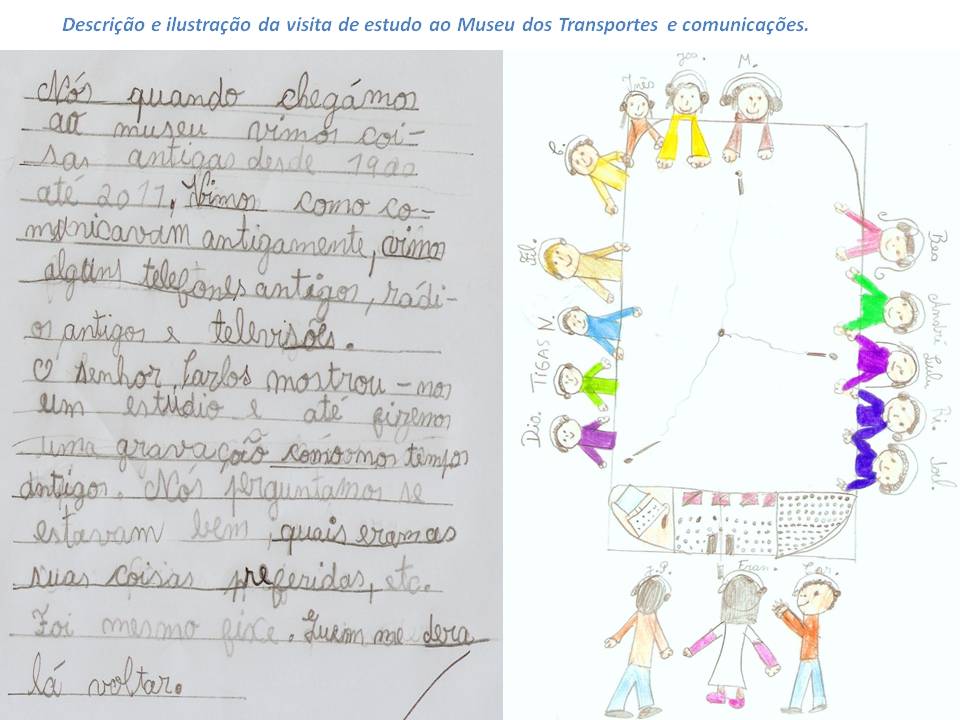 Descrição e ilustração da visita de estudo ao Museu dos Transportes e comunicações.
Nós quando chegámos
ao museu vimos coi-
sas antigas desde 1900
até 2011. Vimos como co-
municavam antigamente, vimos
alguns telefones antigos, rádi-
os antigos e televisões.
O Senhor Carlos mostrou-nos
um estúdio e até fizemos
uma gravação como nos tempos
antigos. Nós perguntamos se
estavam bem, quais eram as
suas coisas preferidas, etc.
Foi mesmo fixe. Quem me dera
lá voltar.
Inês
M.
Fil.
TIGAS N.
Dio.
Bea
André
Lulu
Ri.
Joel.
J.P.
Fran.
Car.